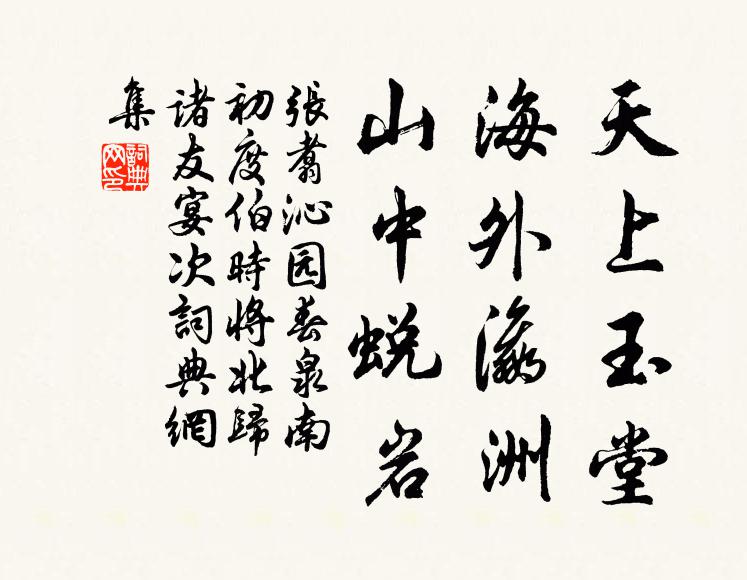 天上玉堂
海外瀛洲
山中蜕岩
張翥沁园春泉南
初度伯時將北歸
諸友宴次詞典網
集
詞典
网印